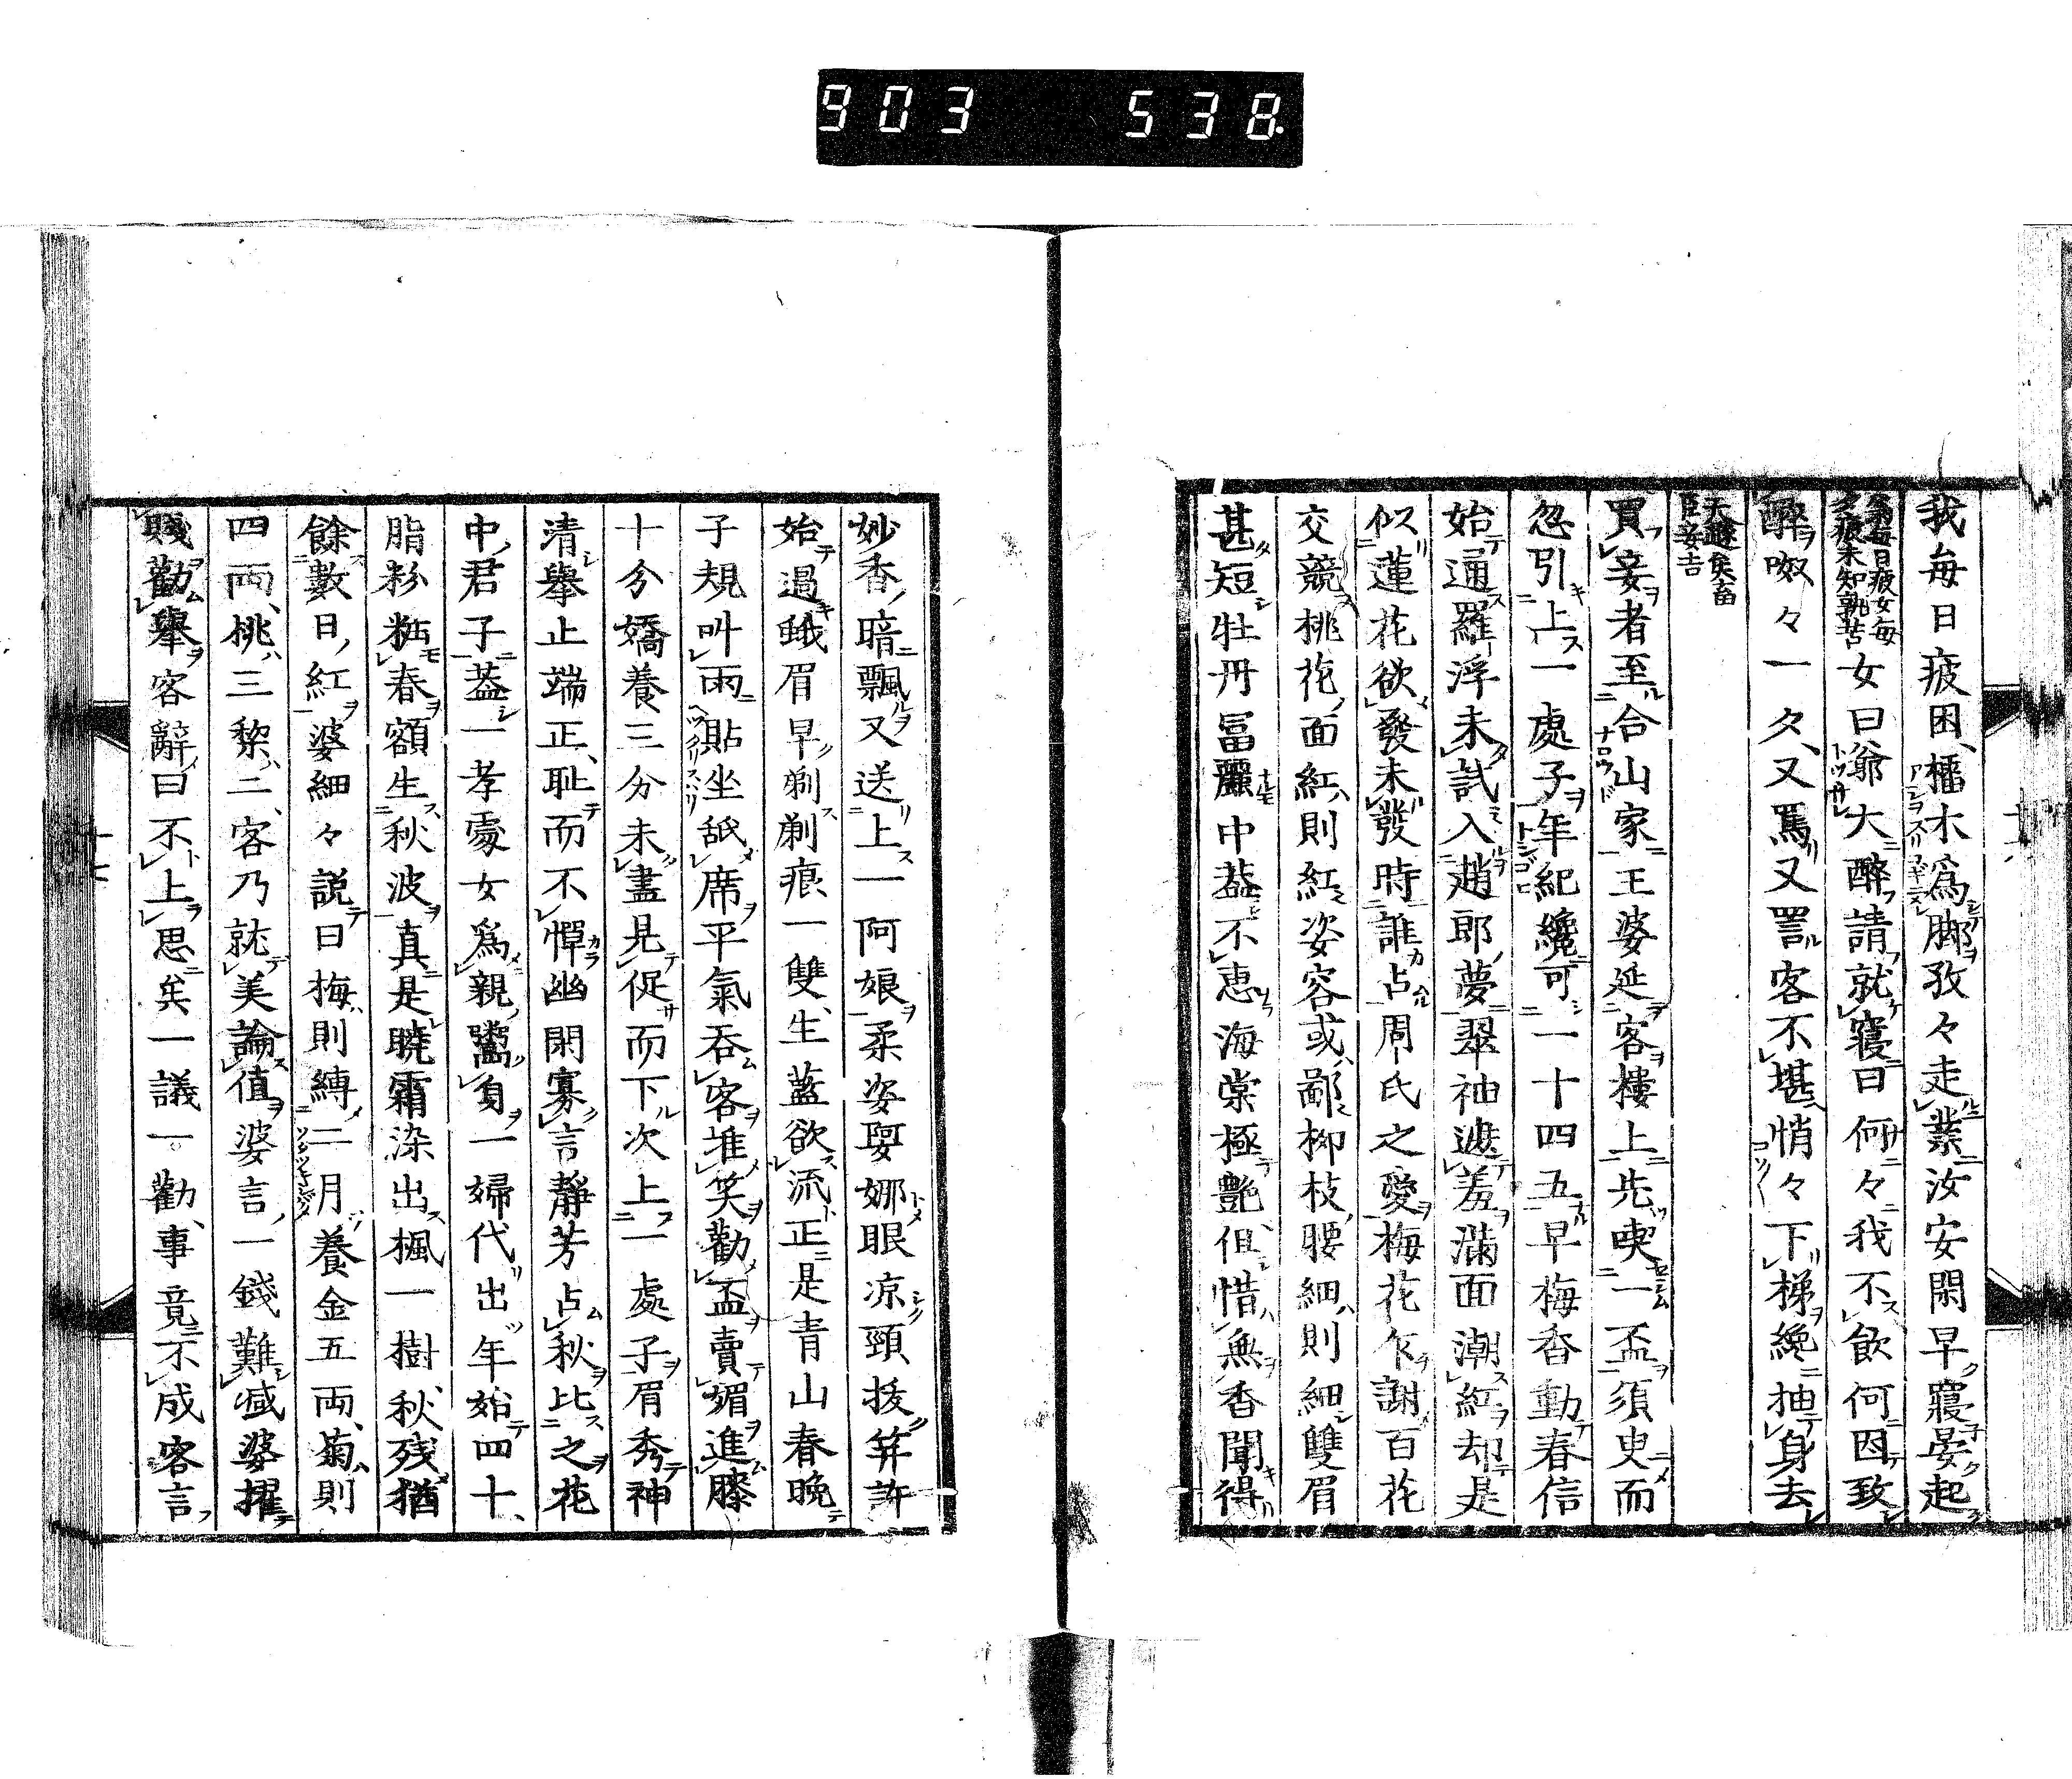 903 538
我毎日疲困、櫑木爲脚孜々走業汝安閑早寢晏起
爺毎日疲女毎夕疲未知孰苦女曰爺大醉請就寢曰何々我不飮何因致
醉呶々一夕、又罵又詈客不堪悄々下梯纔抽身去
天遯矣畜臣妾吉
買妾者至合山家王婆延客樓上先喫一盃須臾而
忽引上一處子年紀纔可一十四五早梅香動春信
始通羅浮未試入趙郎夢翠袖遮羞滿面潮紅却是
似蓮花欲發未發時誰占周氏之愛梅花乍謝百花
交競桃花面紅則紅姿容或鄙柳枝腰細則細雙眉
甚短牡丹冨麗中葢不惠海棠極艷但惜無香聞得
妙香暗飄又送上一阿娘柔姿娿娜眼凉頸抜笄許
始過蛾眉早剃剃痕一雙、生藍欲流正是青山春晩
子規叫雨貼坐舐席平氣呑客堆笑勸盃賣媚進膝
十分嬌養三分未盡見促而下次上一處子眉秀神
清擧止端正、耻而不憚幽閑寡言靜芳占秋比之花
中君子葢一孝處女爲親鬻身一婦代出年始四十、
脂粉粧春額生秋波眞是曉霜染出楓一樹秋残猶
餘數日紅婆細々説曰梅則縛二月養金五兩、菊則
四兩、桃三、棃二、客乃就美論値婆言一錢難减婆擢
賤勸擧客辭曰不上思矣一議一勸、事竟不成客言